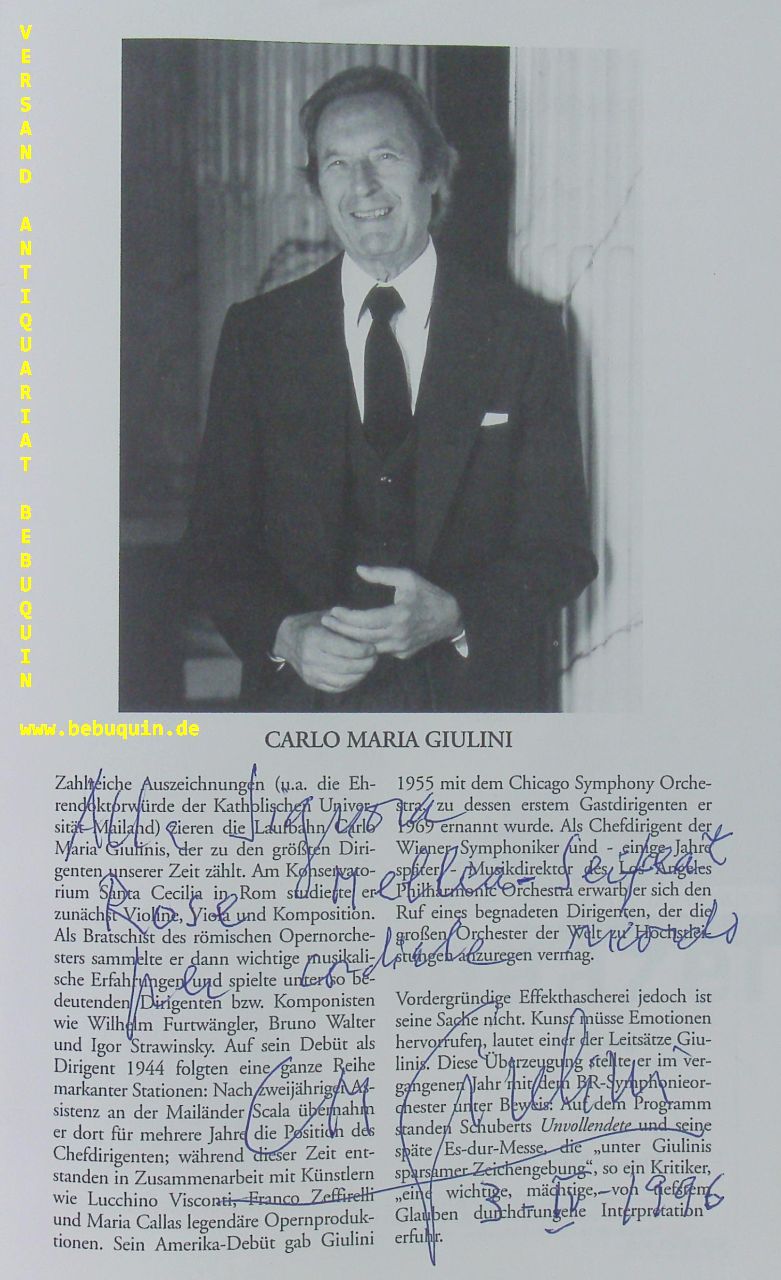 VERSAND ANTIQUARIAT BEBUQUIN
www.bebuquin.de
CARLO MARIA GIULINI
Zahlreiche Auszeichnungen (u.a. die Eh-
rendoktorwürde der Katholischen Univer-
sität Mailand) zieren die Laufbahn Carlo
Maria Giulinis, der zu den größten Diri-
genten unserer Zeit zählt. Am Konservato-
rium Santa Cecilia in Rom studierte er
zunächst Violine, Viola und Komposition.
Als Bratschist des römischen Opernorche-
sters sammelte er dann wichtige musikali-
sche Erfahrungen und spielte unter so be-
deutenden Dirigenten bzw. Komponisten
wie Wilhelm Furtwängler, Bruno Walter
und Igor Strawinsky. Auf sein Debüt als
Dirigent 1944 folgten eine ganze Reihe
markanter Stationen: Nach zweijähriger As-
sistenz an der Mailänder Scala übernahm
er dort für mehrere Jahre die Position des
Chefdirigenten; während dieser Zeit ent-
standen in Zusammenarbeit mit Künstlern
wie Lucchino Visconti, Franco Zeffirelli
und Maria Callas legendäre Opernproduk-
tionen. Sein Amerika-Debüt gab Giulini
1955 mit dem Chicago Symphony Orche-
stra, zu dessen erstem Gastdirigenten er
1969 ernannt wurde. Als Chefdirigent der
Wiener Symphoniker und - einige Jahre
später - Musikdirektor des Los Angeles
Philharmonic Orchestra erwarb er sich den
Ruf eines begnadeten Dirigenten, der die
großen Orchester der Welt zu Höchstlei-
stungen anzuregen vermag.
Vordergründige Effekthascherei jedoch ist
seine Sache nicht. Kunst müsse Emotionen
hervorrufen, lautet einer der Leitsätze Giu-
linis. Diese Überzeugung stellte er im ver-
gangenen Jahr mit dem BR-Symphonieor-
chester unter Beweis: Auf dem Programm
standen Schuberts Unvollendete und seine
späte Es-dur-Messe, die „unter Giulinis
sparsamer Zeichengebung“, so ein Kritiker,
„eine wichtige, mächtige, von tiefstem
Glauben durchdrungene Interpretation“
erfuhr.
Alla Signora
Rose
per cordiale ricordo
CM Giulini
3-IV-1996